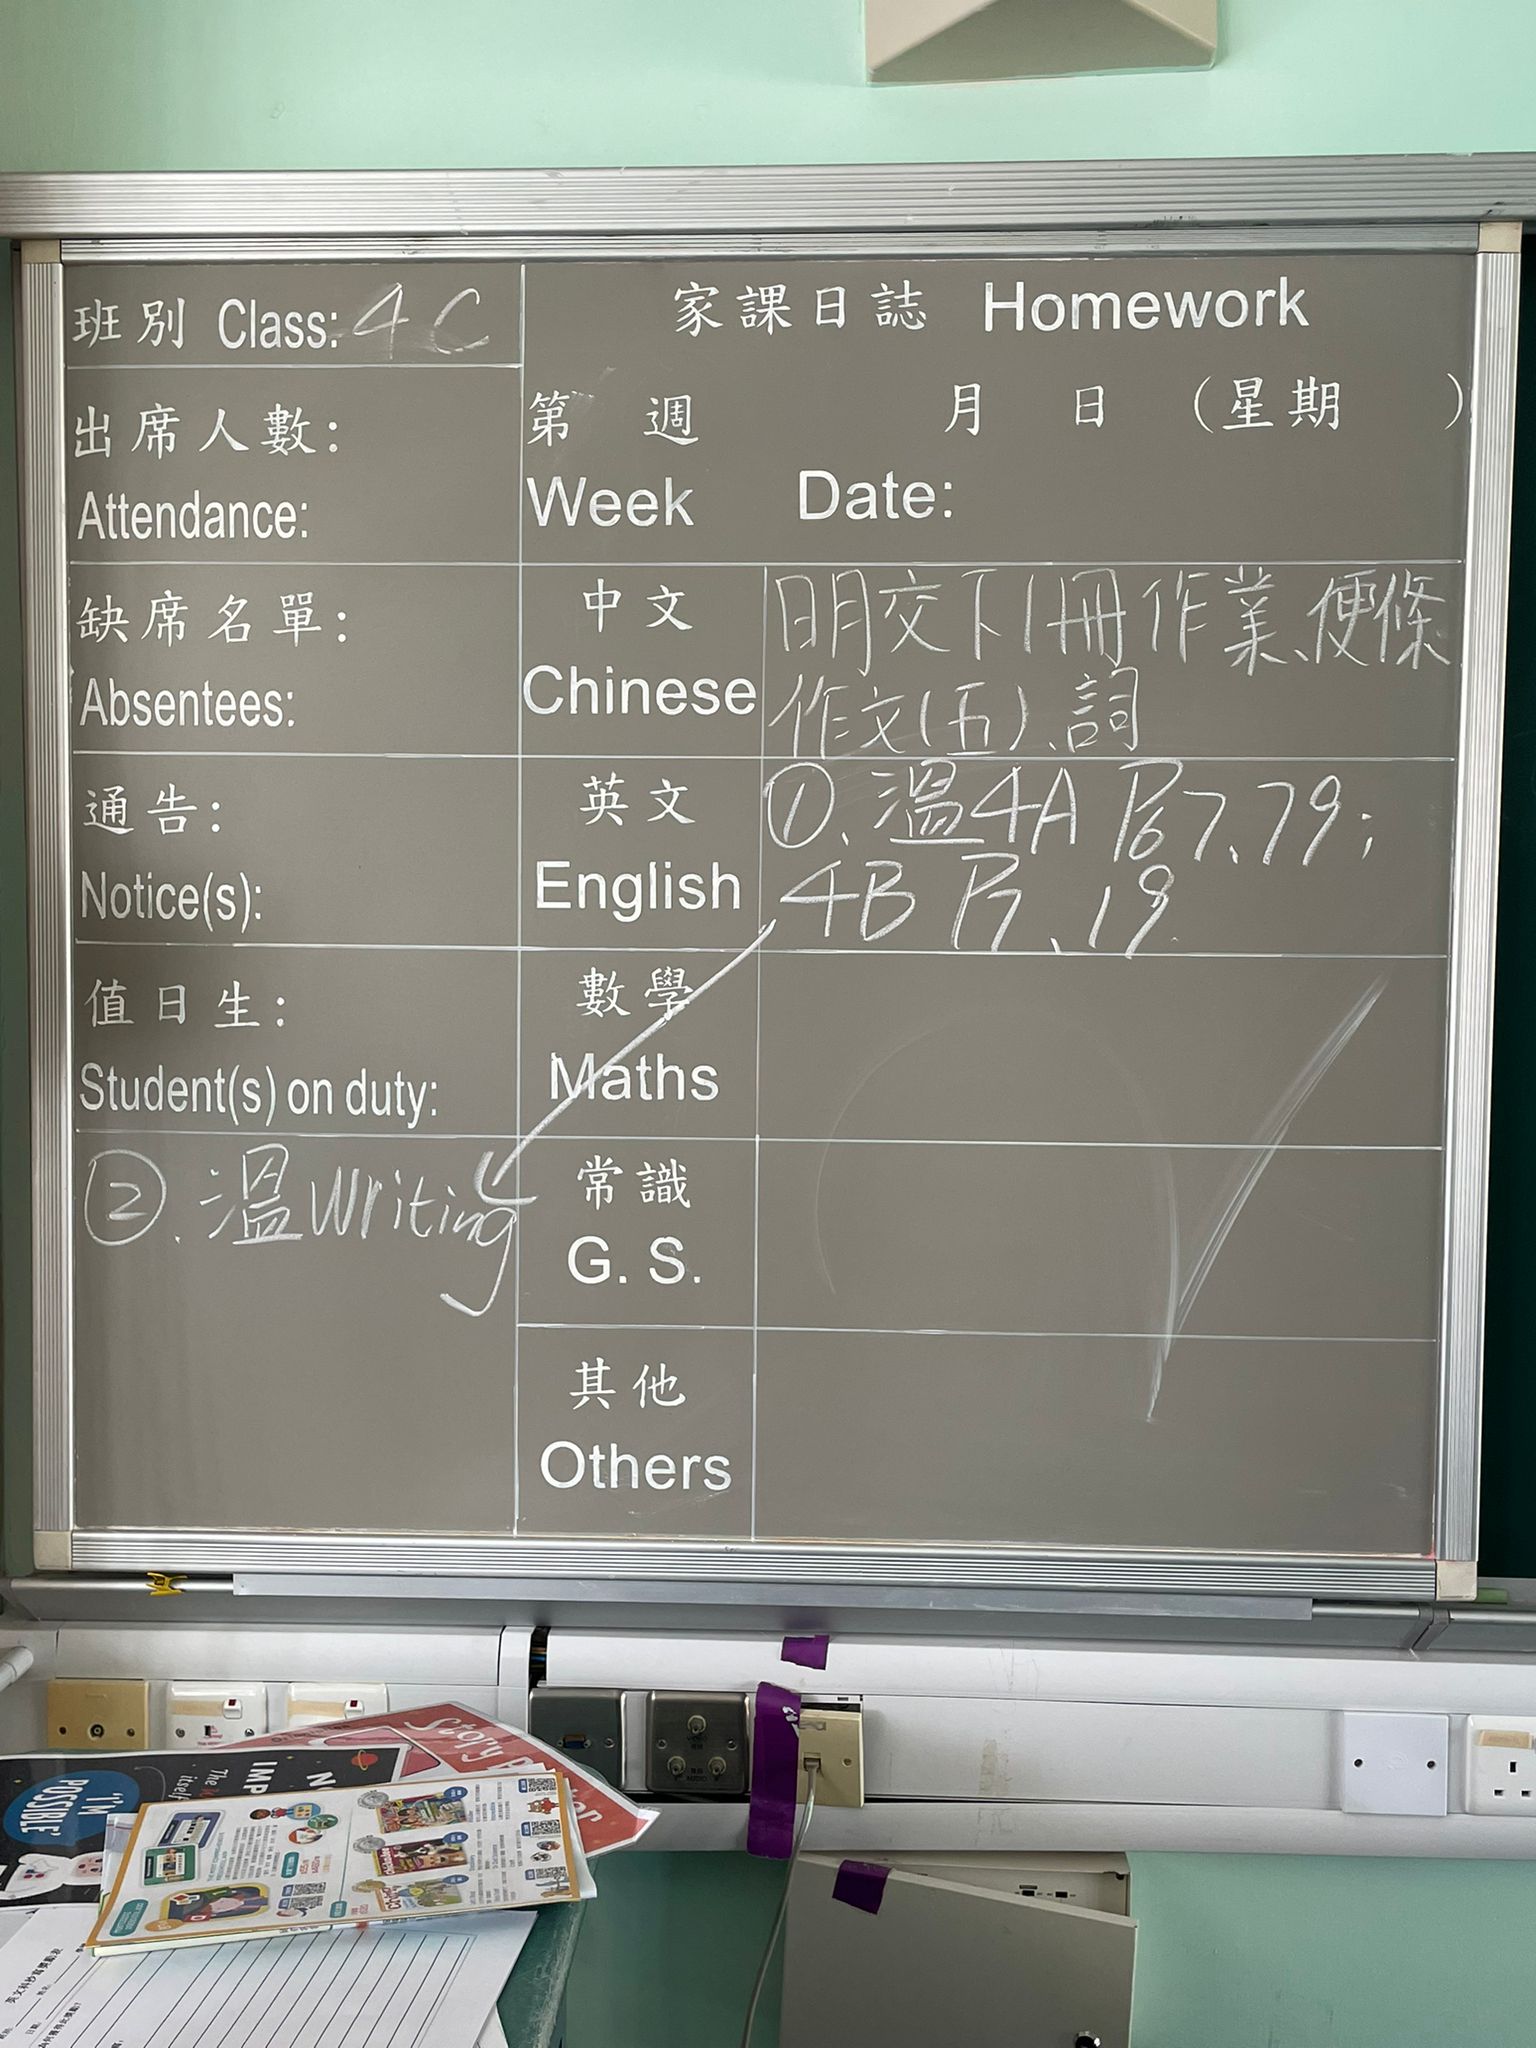 班別 Class: 4C
家課日誌 Homework
出席人數:
Attendance:
第 週 月 日 (星期 )
Week Date:
缺席名單:
Absentees:
中文
Chinese
明交下1冊作業、便條
作文(五)、詞
通告:
Notice(s):
英文
English
①、溫4A P67、79;
4B P7、19.
值日生:
Student(s) on duty:
數學
Maths
②. 溫Writing
常識
G. S.
其他
Others
Story
I'M
POSSIBLE'
The
itself
英文科抄寫獎勵表